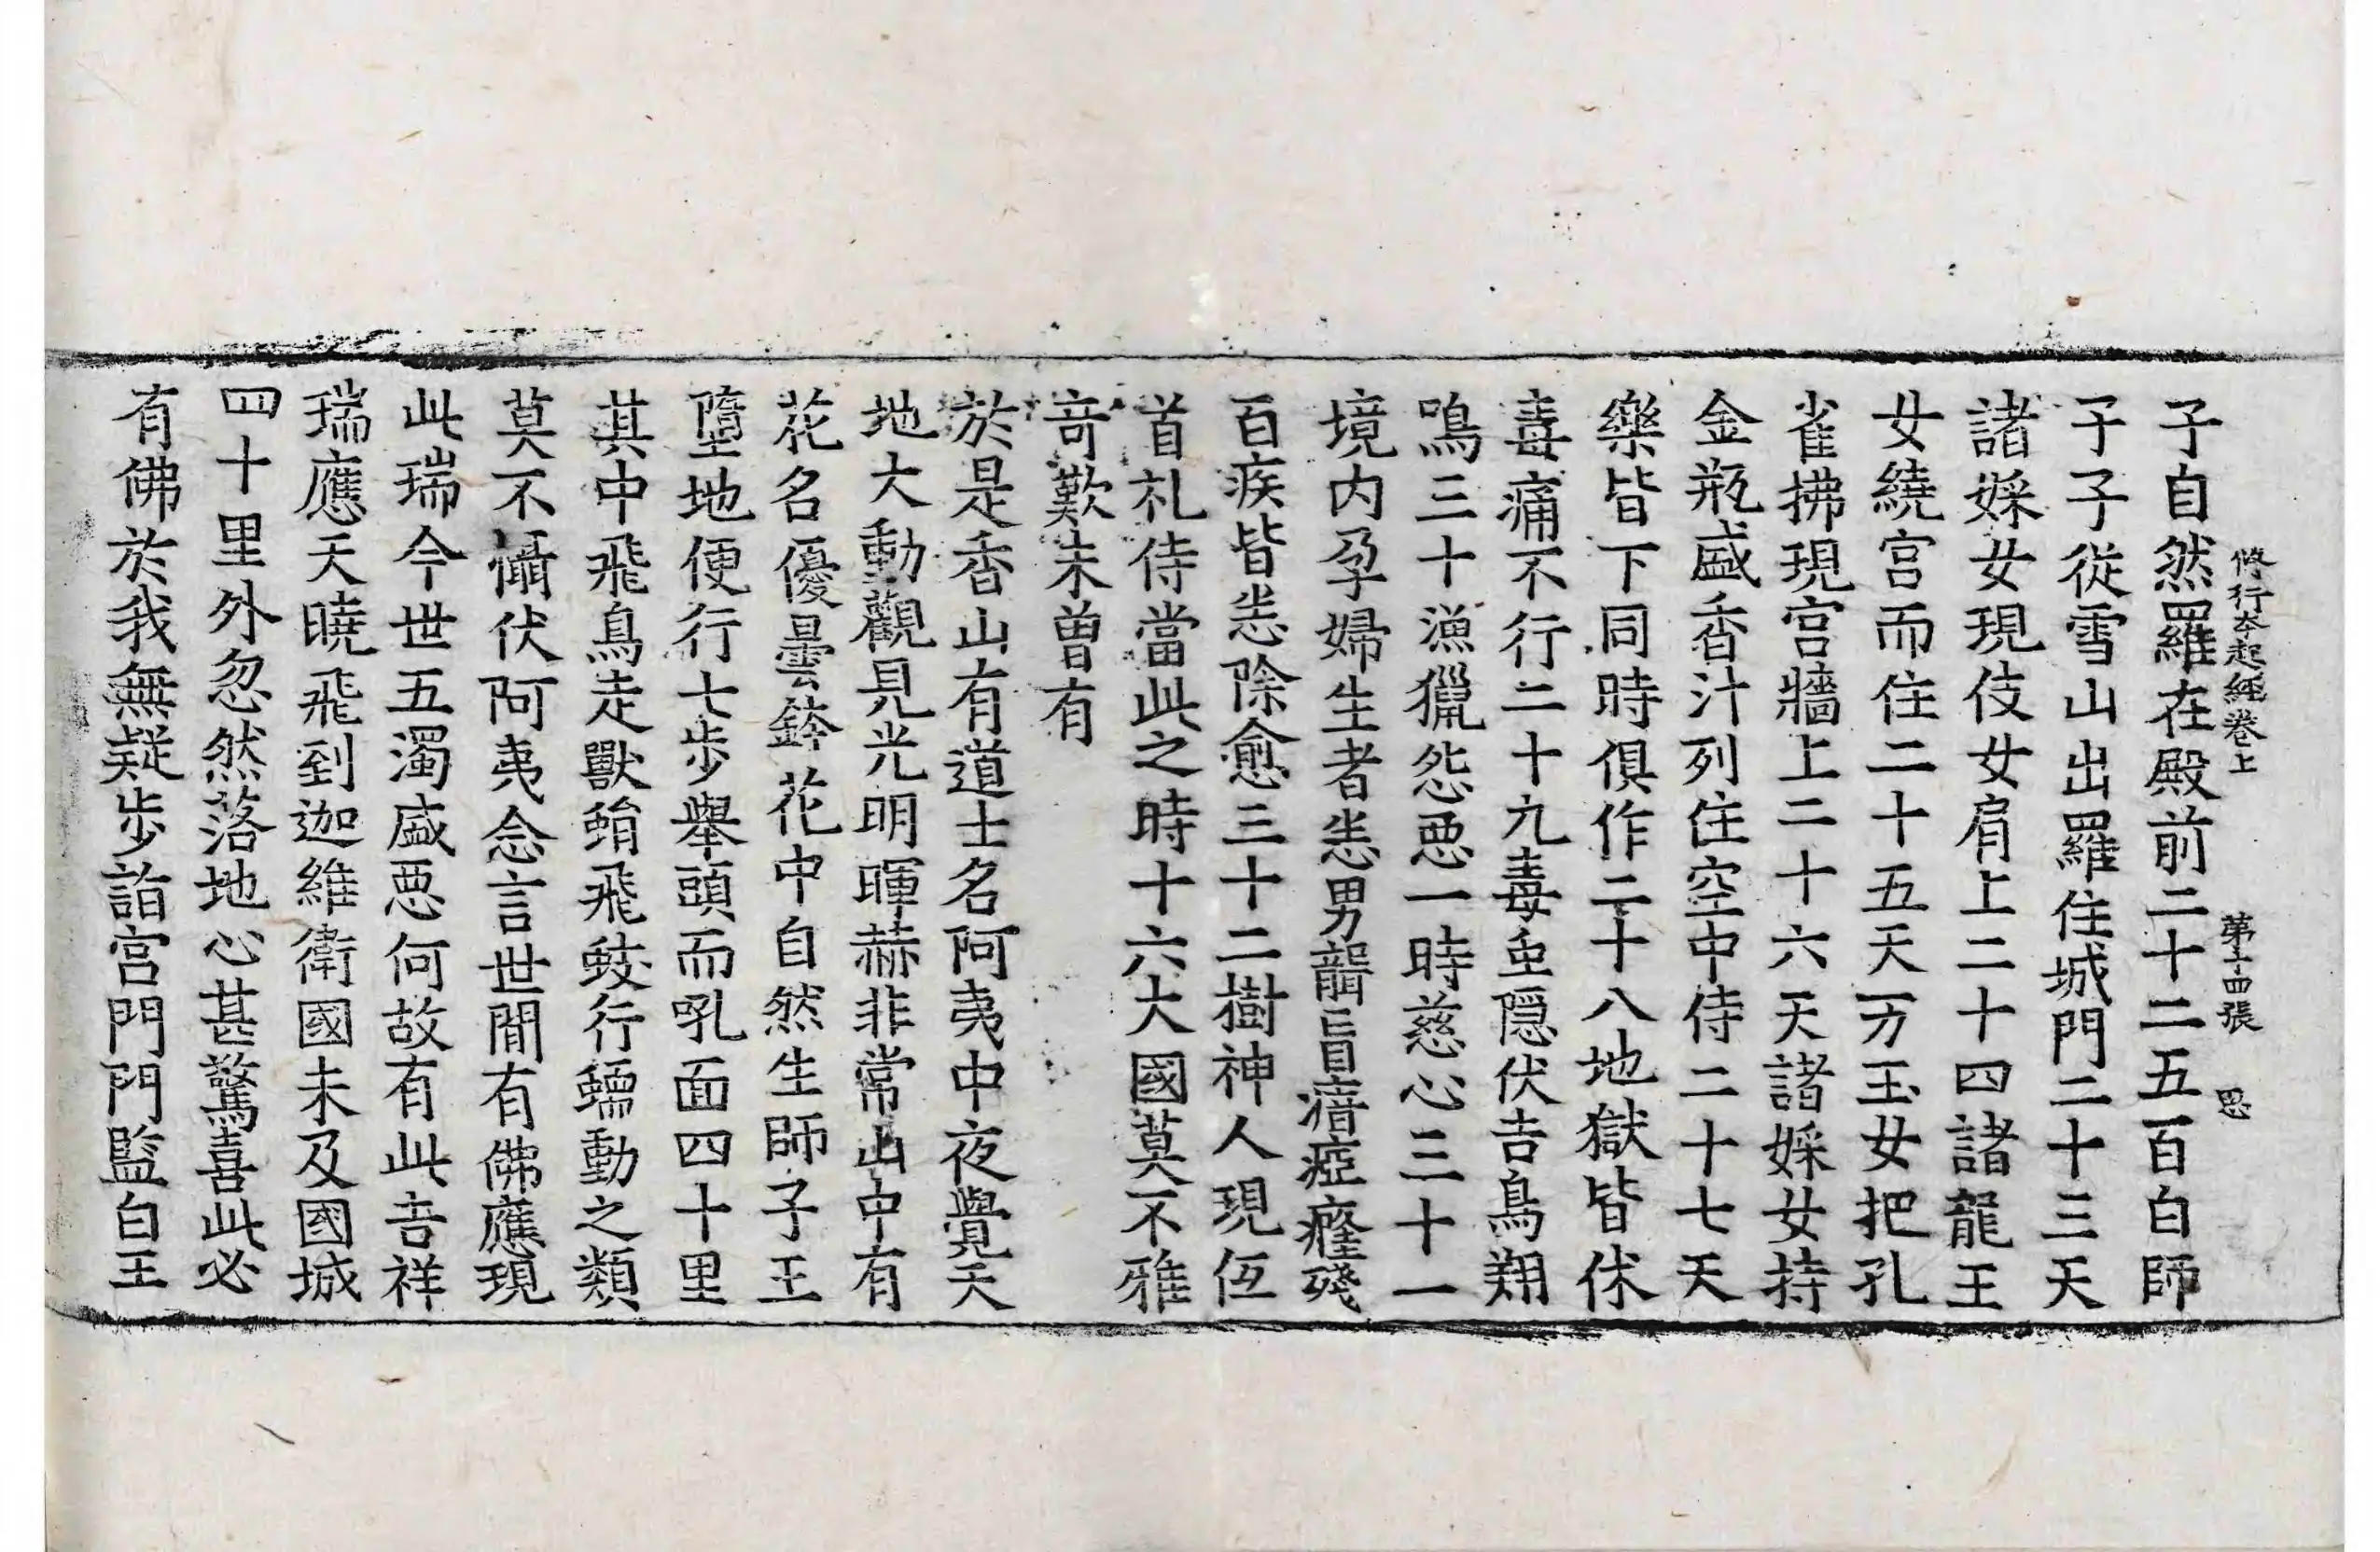 修行本起經卷上 第十四張 思
子自然羅在殿前二十二五百白師
子子從雪山出羅住城門二十三天
諸婇女現伎女肩上二十四諸龍王
女繞宫而住二十五天万玉女把孔
雀拂現宫牆上二十六天諸婇女持
金瓶盛香汁列住空中侍二十七天
樂皆下同時俱作二十八地獄皆休
毒痛不行二十九毒虫隠伏吉鳥翔
鳴三十漁獵怨惡一時慈心三十一
境内孕婦生者悉男聾盲瘖瘂癃殘
百疾皆悉除愈三十二樹神人現伍
首礼侍當此之時十六大國莫不雅
奇歎未曽有
於是香山有道士名阿夷中夜覺天
地大動觀見光明暉赫非常山中有
花名優曇鉢花中自然生師子王
墮地便行七歩舉頭而吼面四十里
其中飛鳥走獸蜎飛蚑行蠕動之類
莫不懾伏阿夷念言世間有佛應現
此瑞今世五濁盛惡何故有此吉祥
瑞應天曉飛到迦維衛國未及國城
四十里外忽然落地心甚驚喜此必
有佛於我無疑歩詣宫門門監白王